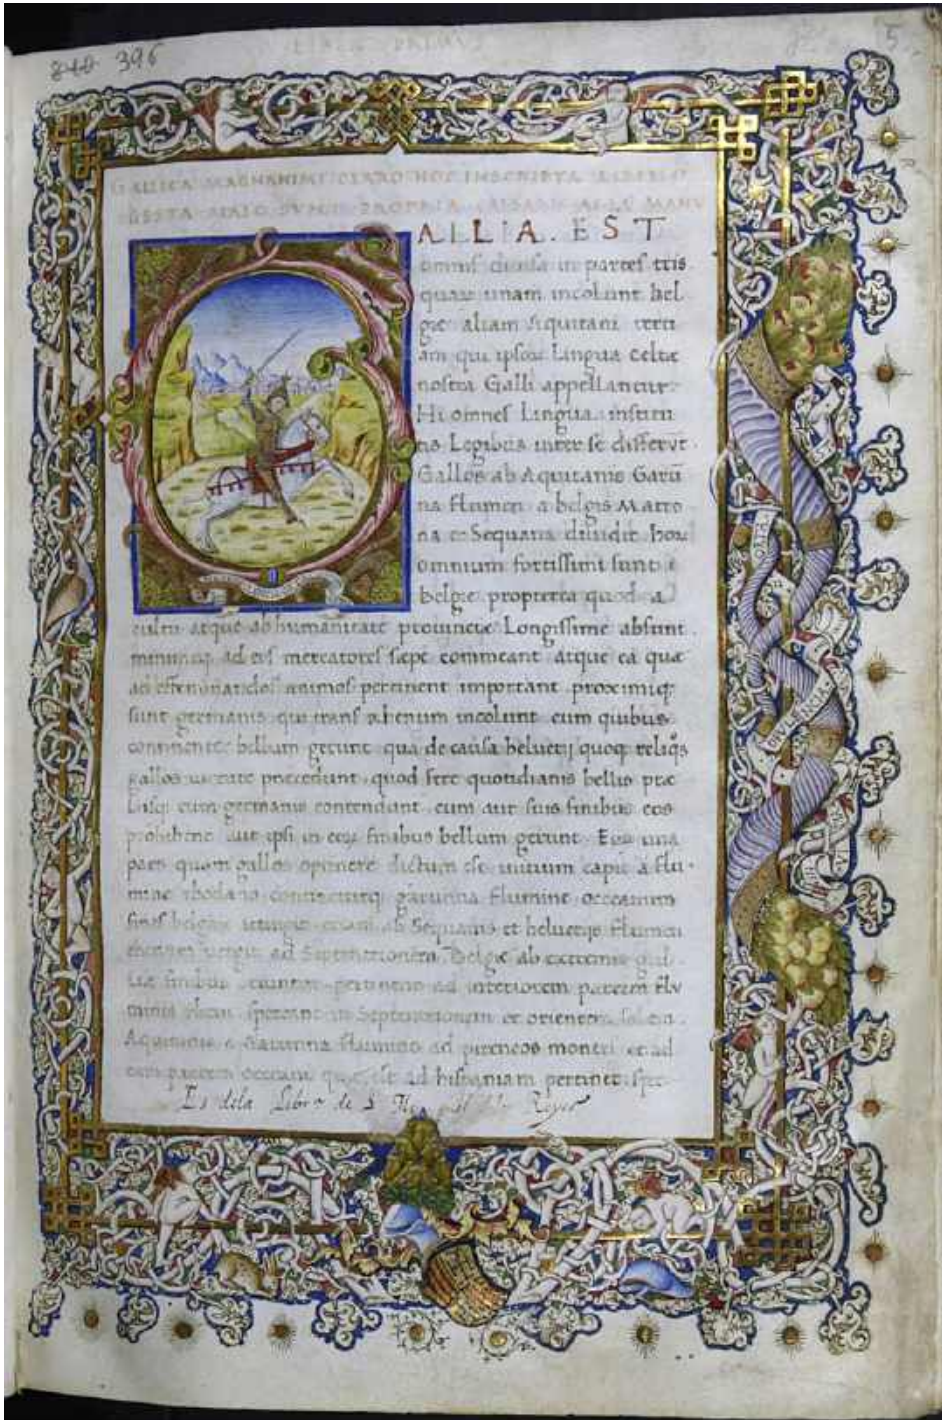 840 396
LIBER PRIMUS
5
GALLICA MAGNANIMI CLARO HOC INSCRIPTA LIBELLO
GESTA MANU
ALLIA. EST
omnis diuisa in partes tris
quarum unam incolunt bel
gae aliam Aquitani terti
am qui ipsorum Lingua Celtae
nostra Galli appellantur.
Hi omnes Lingua institu
tis Legibus inter se differut.
Gallos ab Aquitanis Garū
na flumen a belgis Matro
na et Sequana diuidit. horū
omnium fortissimi sunt
belgae propterea quod a
cultu atque ab humanitate prouinciae Longissime absunt.
minimeq; ad eos mercatores saepe commeant atque ea quae
ad effeminandos animos pertinent important. proximiq;
sunt germanis qui trans rhenum incolunt. cum quibus
continenter bellum gerunt. qua de causa heluetij quoq; reliqos
gallos uirtute precedunt. quod fere quotidianis bellis prae
cum germanis contendunt. cum aut suis finibus eos
prohibent aut ipsi in eorum finibus bellum gerunt. Eorum una
pars quam gallos optinere dictum est initium capit a flu
mine rhodano continetur garunna flumine occeanum
finibus belgarum attingit etiam ab Sequanis et heluetijs flumen
rhenum uergit ad Septentrionem. Belgae ab extremis gal
liae finibus oriuntur pertinent ad inferiorem partem flu
minis rheni spectant in Septentrionem et orientem solem.
Aquitania a Garunna flumine ad pireneos montes et ad
eam partem occeani quae est ad hispaniam pertinet. spec
Es de la Libra de S.